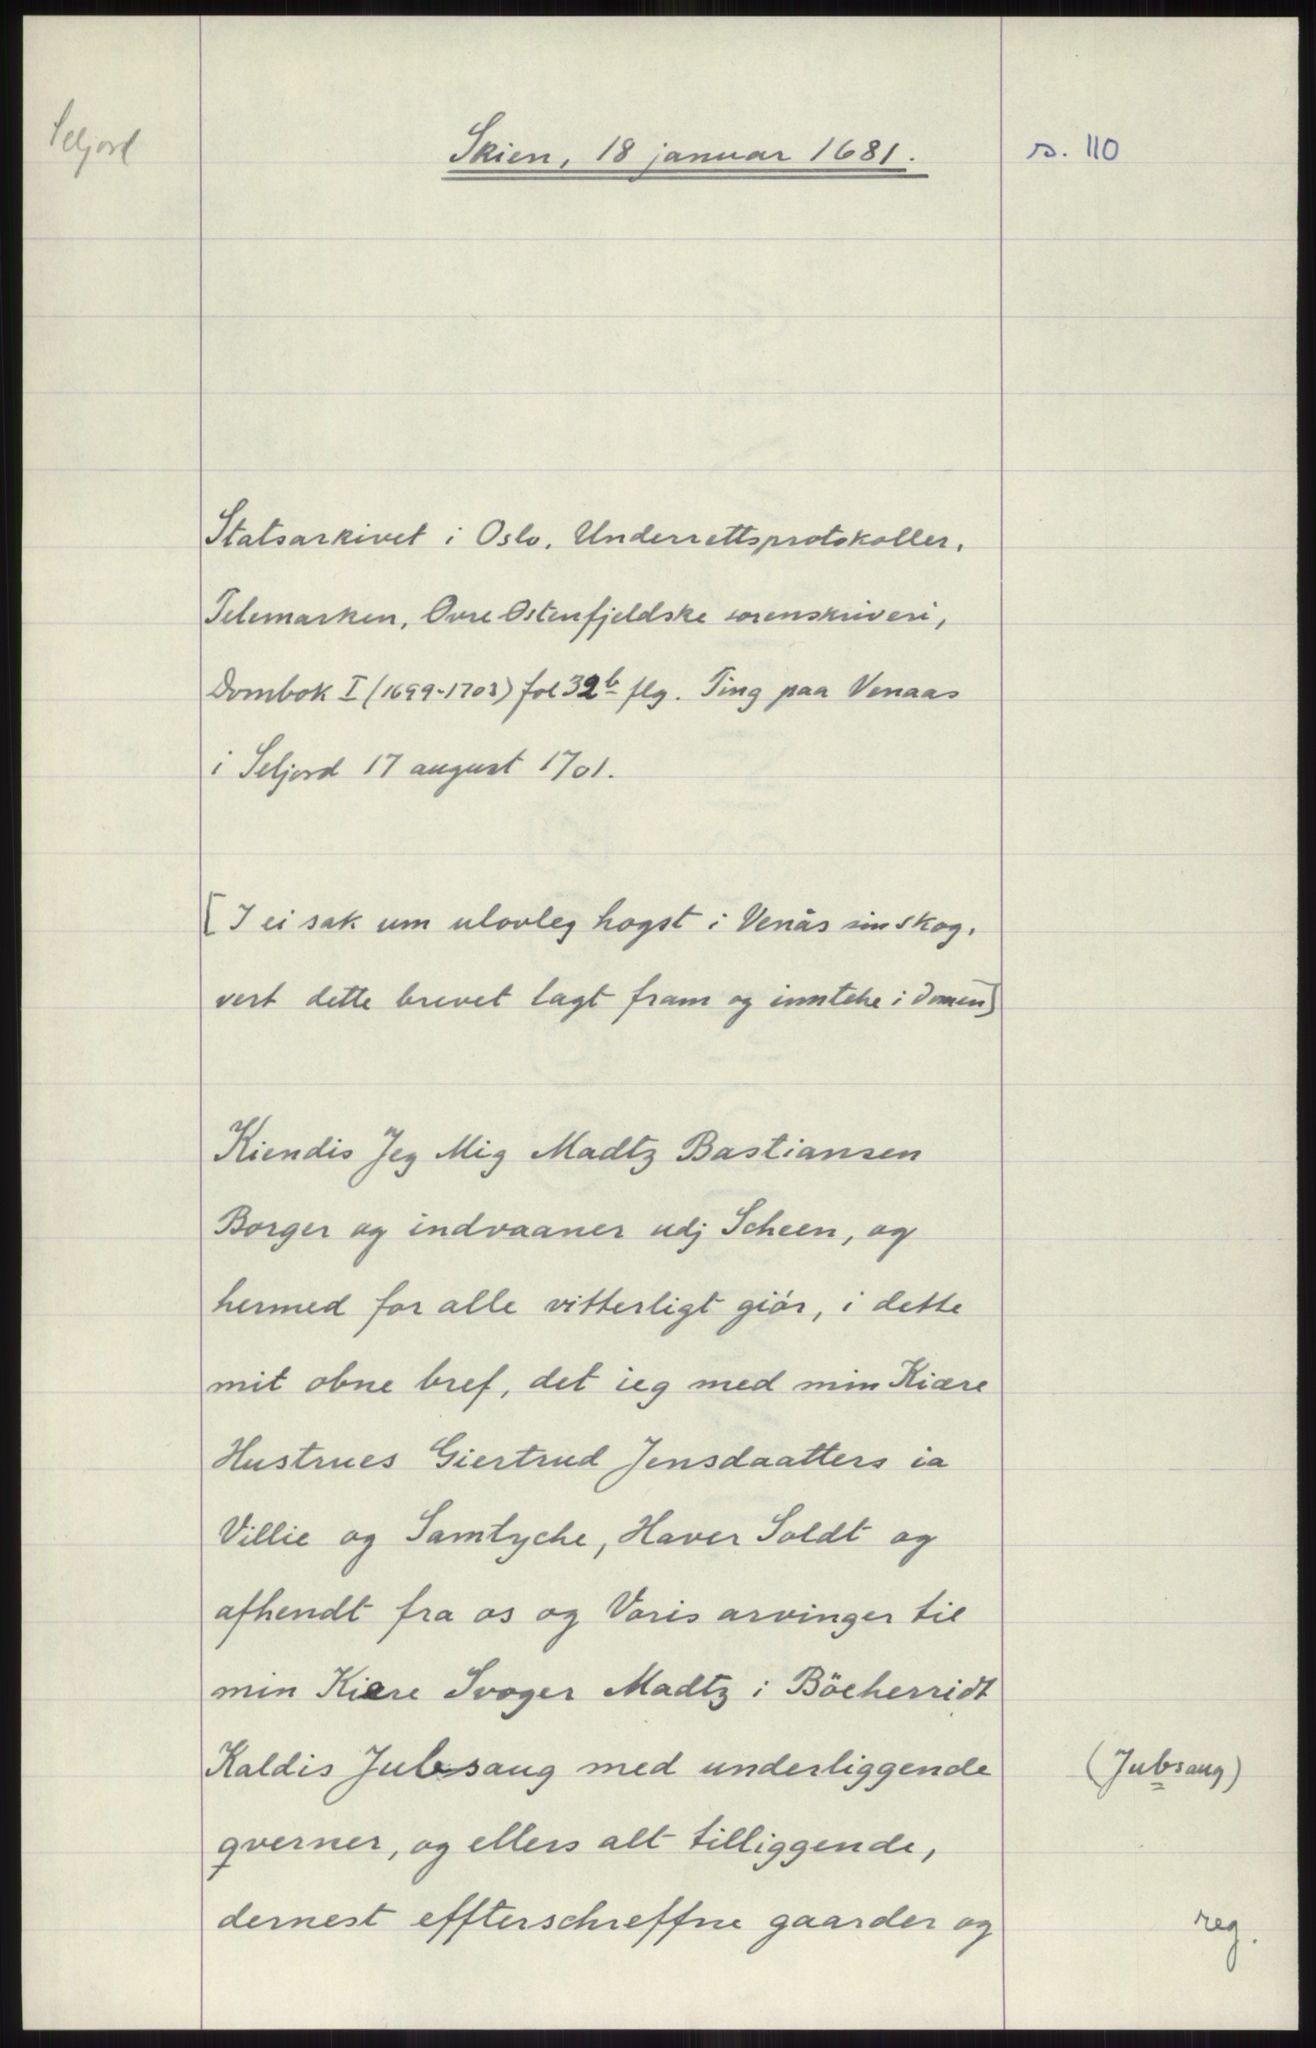 Seljord
Skien, 18 januar 1681.
s. 110
Statsarkivet i Oslo. Underrettsprotokoller,
Telemarken, Øvre Østenfjeldske sorenskriveri,
Dombok I (1699-1703) fol 32b flg. Ting paa Venaas
i Seljord 17 august 1701.
[I ei sak um ulovleg hogst i Venås sin skog,
vert dette brevet lagt fram og innteke i domen]
Kiendis Jeg Mig Madtz Bastiansen
Borger og indvaaner udj Scheen, og
hermed for alle vitterligt giör, i dette
mit obne bref, det ieg med min Kiære
Hustrues Giertrud Jensdaatters ia
Villie og Samtyche, Haver Soldt og
afhendt fra os og Voris arvinger til
min Kiere Svoger Madtz i Böeherridt
Kaldis Jubsaug med underliggende
(Jubsaug)
qverner, og ellers alt tilliggende,
dernest effterschreffne gaarder og
reg.